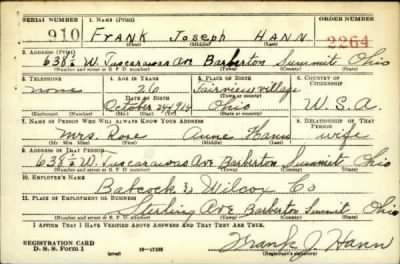 SERIAL NUMBER 1. NAME (Print) ORDER NUMBER
910 FRANK Joseph HANN 2264
(First) (Middle) (Last)
2. ADDRESS (Print)
638½ W. Tuscarawas Ave Barberton Summit Ohio
(Number and street or R. F. D. number) (Town) (County) (State)
3. TELEPHONE 4. AGE IN YEARS 5. PLACE OF BIRTH 6. COUNTRY OF CITIZENSHIP
none 26 Fairview Village
DATE OF BIRTH (Town or county)
October 24 1914 Ohio U.S.A.
(Mo.) (Day) (Yr.) (State or country)
7. NAME OF PERSON WHO WILL ALWAYS KNOW YOUR ADDRESS 8. RELATIONSHIP OF THAT PERSON
Mrs. Rose Anne Hann wife
(Mr. Mrs. Miss) (First) (Middle) (Last)
9. ADDRESS OF THAT PERSON
638½ W. Tuscarawas Ave Barberton Summit Ohio
(Number and street or R. F. D. number) (Town) (County) (State)
10. EMPLOYER'S NAME
Babcock & Wilcox Co
11. PLACE OF EMPLOYMENT OR BUSINESS
Sterling Ave Barberton Summit Ohio
(Number and street or R. F. D. number) (Town) (County) (State)
I AFFIRM THAT I HAVE VERIFIED ABOVE ANSWERS AND THAT THEY ARE TRUE.
REGISTRATION CARD
D. S. S. Form 1 16—17105 Frank J. Hann
(Registrant's signature)